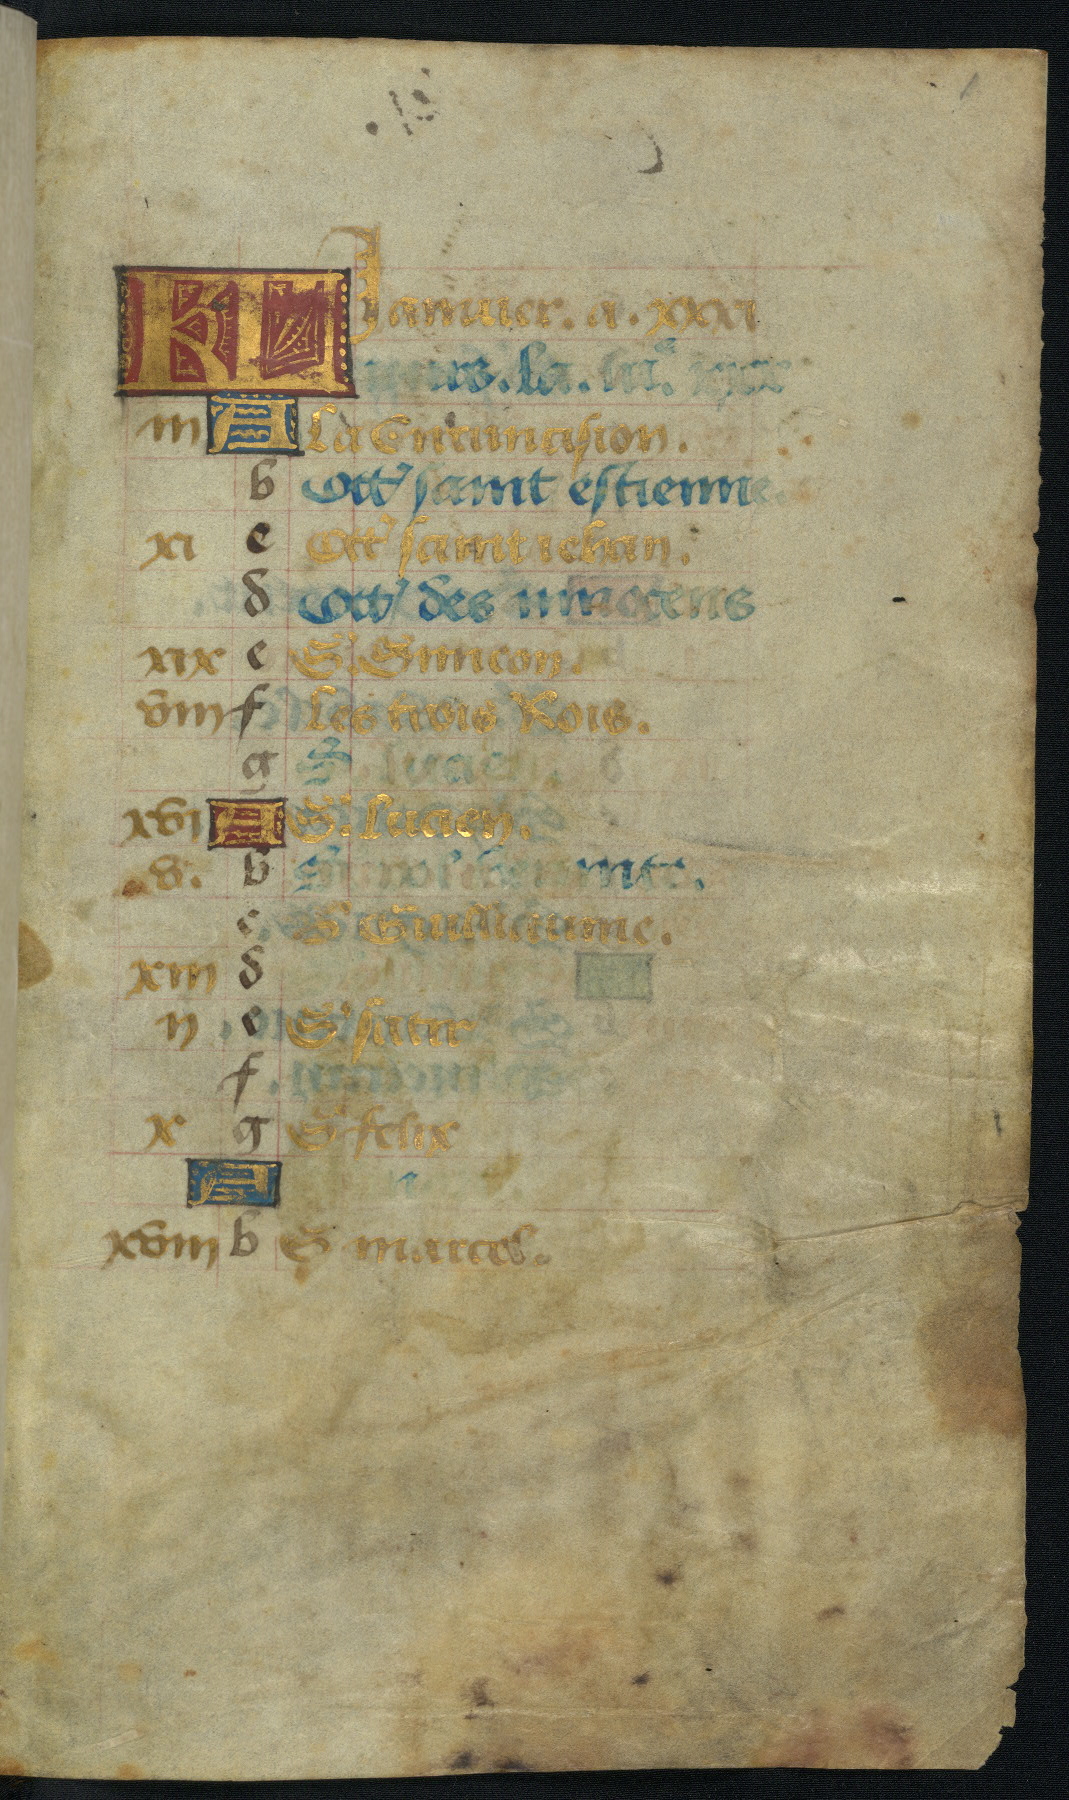 KL Januier. a. xxxi
iours. La. lu.e xxx
iii A La Circuncision.
b Oct' saint estienne.
xi c Oct' saint iehan.
d Oct' des innocens
xix e S. Simeon.
viii f Les trois Rois.
g S. lucien.
xvi A S. Lucien.
v. b
c S Guillaume.
xiii d
ii e S' satir
f
x g S felix
A
xviii b S marcel.